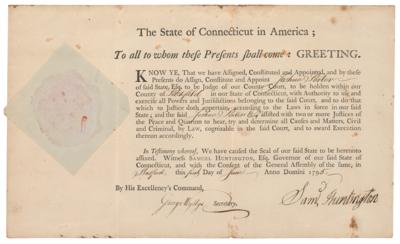 The State of Connecticut in America,
To all to whom these Presents shall come: GREETING.
KNOW YE, That we have Assigned, Constituted and Appointed, and by these
Presents do Assign, Constitute and Appoint Joshua Porter
of said State, Esq. to be Judge of our County Court, to be holden within our
County of Litchfield in our State of Connecticut, with Authority to use and
exercise all Powers and Jurisdictions belonging to the said Court, and to do that
which to Justice doth appertain, according to the Laws in force in our said
State; and the said Joshua Porter Esq. assisted with two or more Justices of
the Peace and Quorum to hear, try and determine all Causes and Matters, Civil
and Criminal, by Law, cognizable in the said Court, and to award Execution
thereon accordingly.
In Testimony whereof, We have caused the Seal of our said State to be hereunto
affixed. Witness SAMUEL HUNTINGTON, Esq. Governor of our said State of
Connecticut, and with the Consent of the General Assembly of the same, in
Hartford, this Day of June Anno Domini 1795.
By His Excellency's Command,
George Wyllys Secretary.
Sam. Huntington